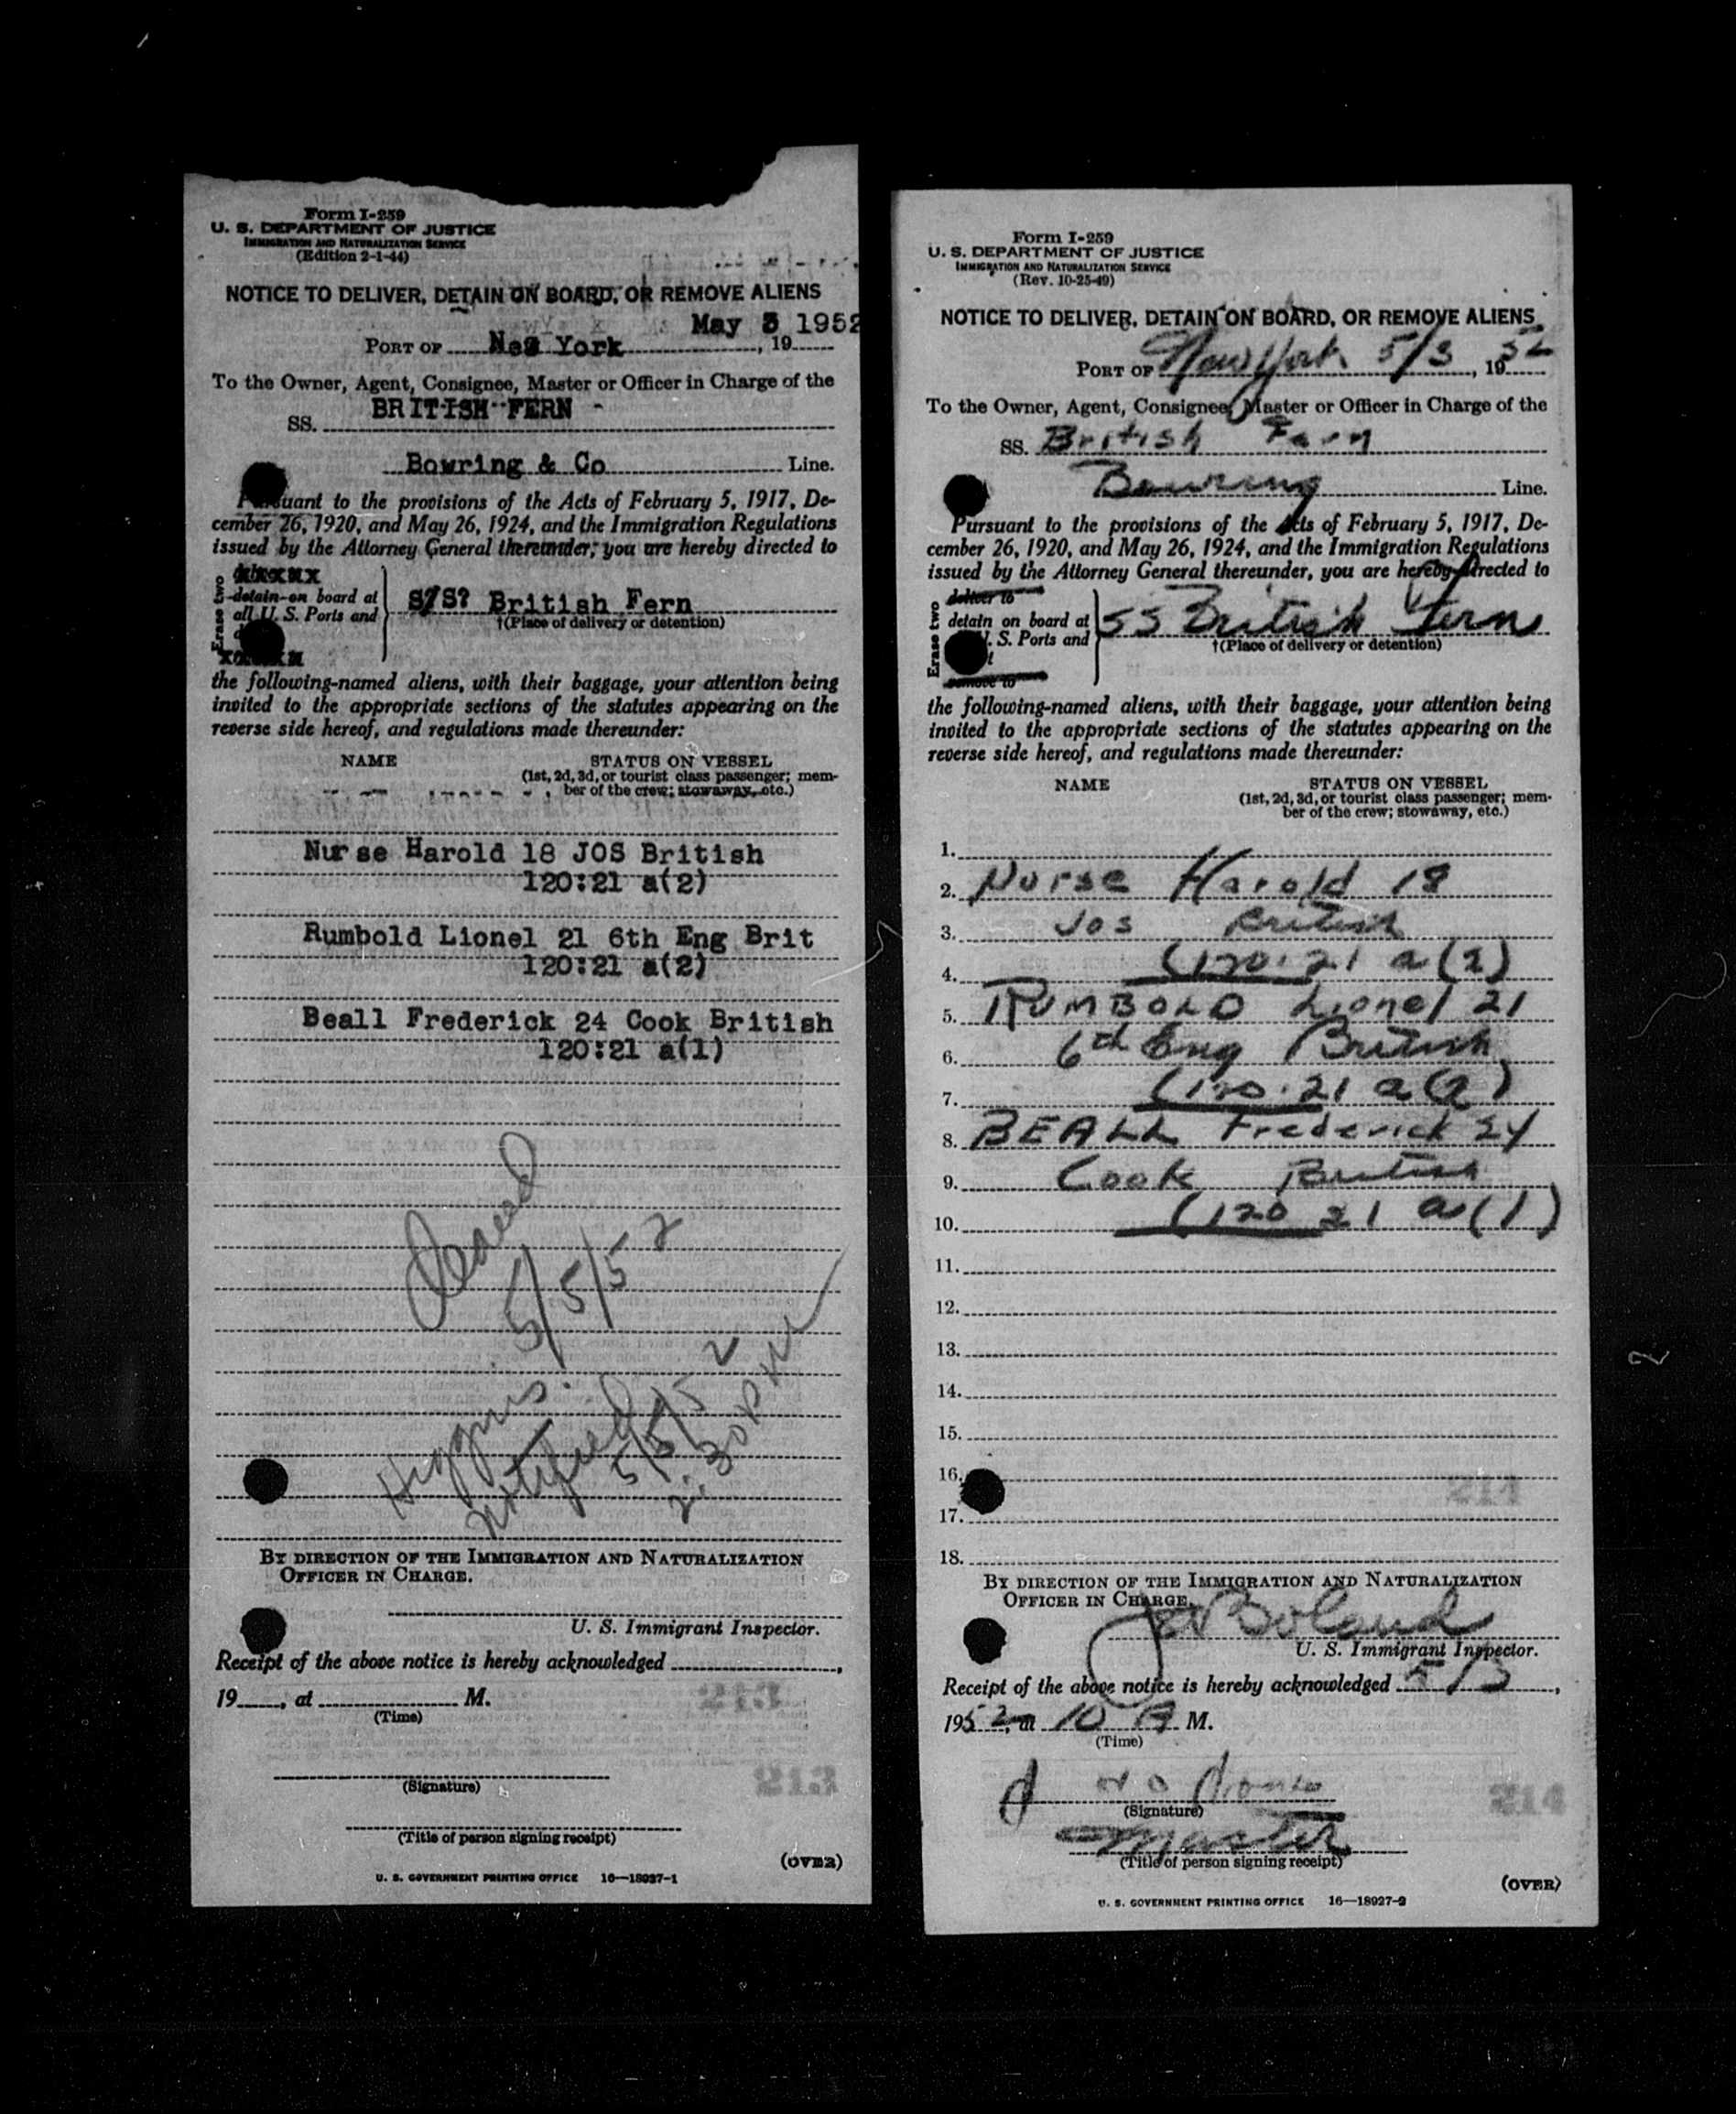 Form I-259
U. S. DEPARTMENT OF JUSTICE
IMMIGRATION AND NATURALIZATION SERVICE
(Edition 2-1-44)
NOTICE TO DELIVER, DETAIN ON BOARD, OR REMOVE ALIENS
May 3 1952
PORT OF New York, 19
To the Owner, Agent, Consignee, Master or Officer in Charge of the
BRITISH FERN
SS.
Bowring & Co Line.
Pursuant to the provisions of the Acts of February 5, 1917, De-
cember 26, 1920, and May 26, 1924, and the Immigration Regulations
issued by the Attorney General thereunder, you are hereby directed to
Erase two
detain on board at
all U. S. Ports and
S/S? British Fern
†(Place of delivery or detention)
the following-named aliens, with their baggage, your attention being
invited to the appropriate sections of the statutes appearing on the
reverse side hereof, and regulations made thereunder:
NAME STATUS ON VESSEL
(1st, 2d, 3d, or tourist class passenger; mem-
ber of the crew; stowaway, etc.)
Nurse Harold 18 JOS British
120:21 a(2)
Rumbold Lionel 21 6th Eng Brit
120:21 a(2)
Beall Frederick 24 Cook British
120:21 a(1)
5/5/52
Higgins
notified 5/5/52
2:30 PM
BY DIRECTION OF THE IMMIGRATION AND NATURALIZATION
OFFICER IN CHARGE.
U. S. Immigrant Inspector.
Receipt of the above notice is hereby acknowledged ,
19 , at M.
(Time)
213
213
(Signature)
(Title of person signing receipt)
(OVER)
U. S. GOVERNMENT PRINTING OFFICE 16—18927-1
Form I-259
U. S. DEPARTMENT OF JUSTICE
IMMIGRATION AND NATURALIZATION SERVICE
(Rev. 10-25-49)
NOTICE TO DELIVER, DETAIN ON BOARD, OR REMOVE ALIENS
PORT OF New York 5/3, 1952
To the Owner, Agent, Consignee, Master or Officer in Charge of the
SS. British Fern
Bowring Line.
Pursuant to the provisions of the Acts of February 5, 1917, De-
cember 26, 1920, and May 26, 1924, and the Immigration Regulations
issued by the Attorney General thereunder, you are hereby directed to
Erase two
deliver to
detain on board at
U. S. Ports and
remove to
SS British Fern
†(Place of delivery or detention)
the following-named aliens, with their baggage, your attention being
invited to the appropriate sections of the statutes appearing on the
reverse side hereof, and regulations made thereunder:
NAME STATUS ON VESSEL
(1st, 2d, 3d, or tourist class passenger; mem-
ber of the crew; stowaway, etc.)
1.
2. Nurse Harold 18
3. Jos British
4. (120.21 a(2)
5. RUMBOLD Lionel 21
6. 6th Eng British
7. (120.21 a(2)
8. BEALL Frederick 24
9. Cook British
10. (120 21 a(1)
11.
12.
13.
14.
15.
16.
214
17.
18.
BY DIRECTION OF THE IMMIGRATION AND NATURALIZATION
OFFICER IN CHARGE.
Boland
U. S. Immigrant Inspector.
Receipt of the above notice is hereby acknowledged 5/3,
1952, at 10 A M.
(Time)
214
(Signature)
Master
(Title of person signing receipt)
(OVER)
U. S. GOVERNMENT PRINTING OFFICE 16—18927-2